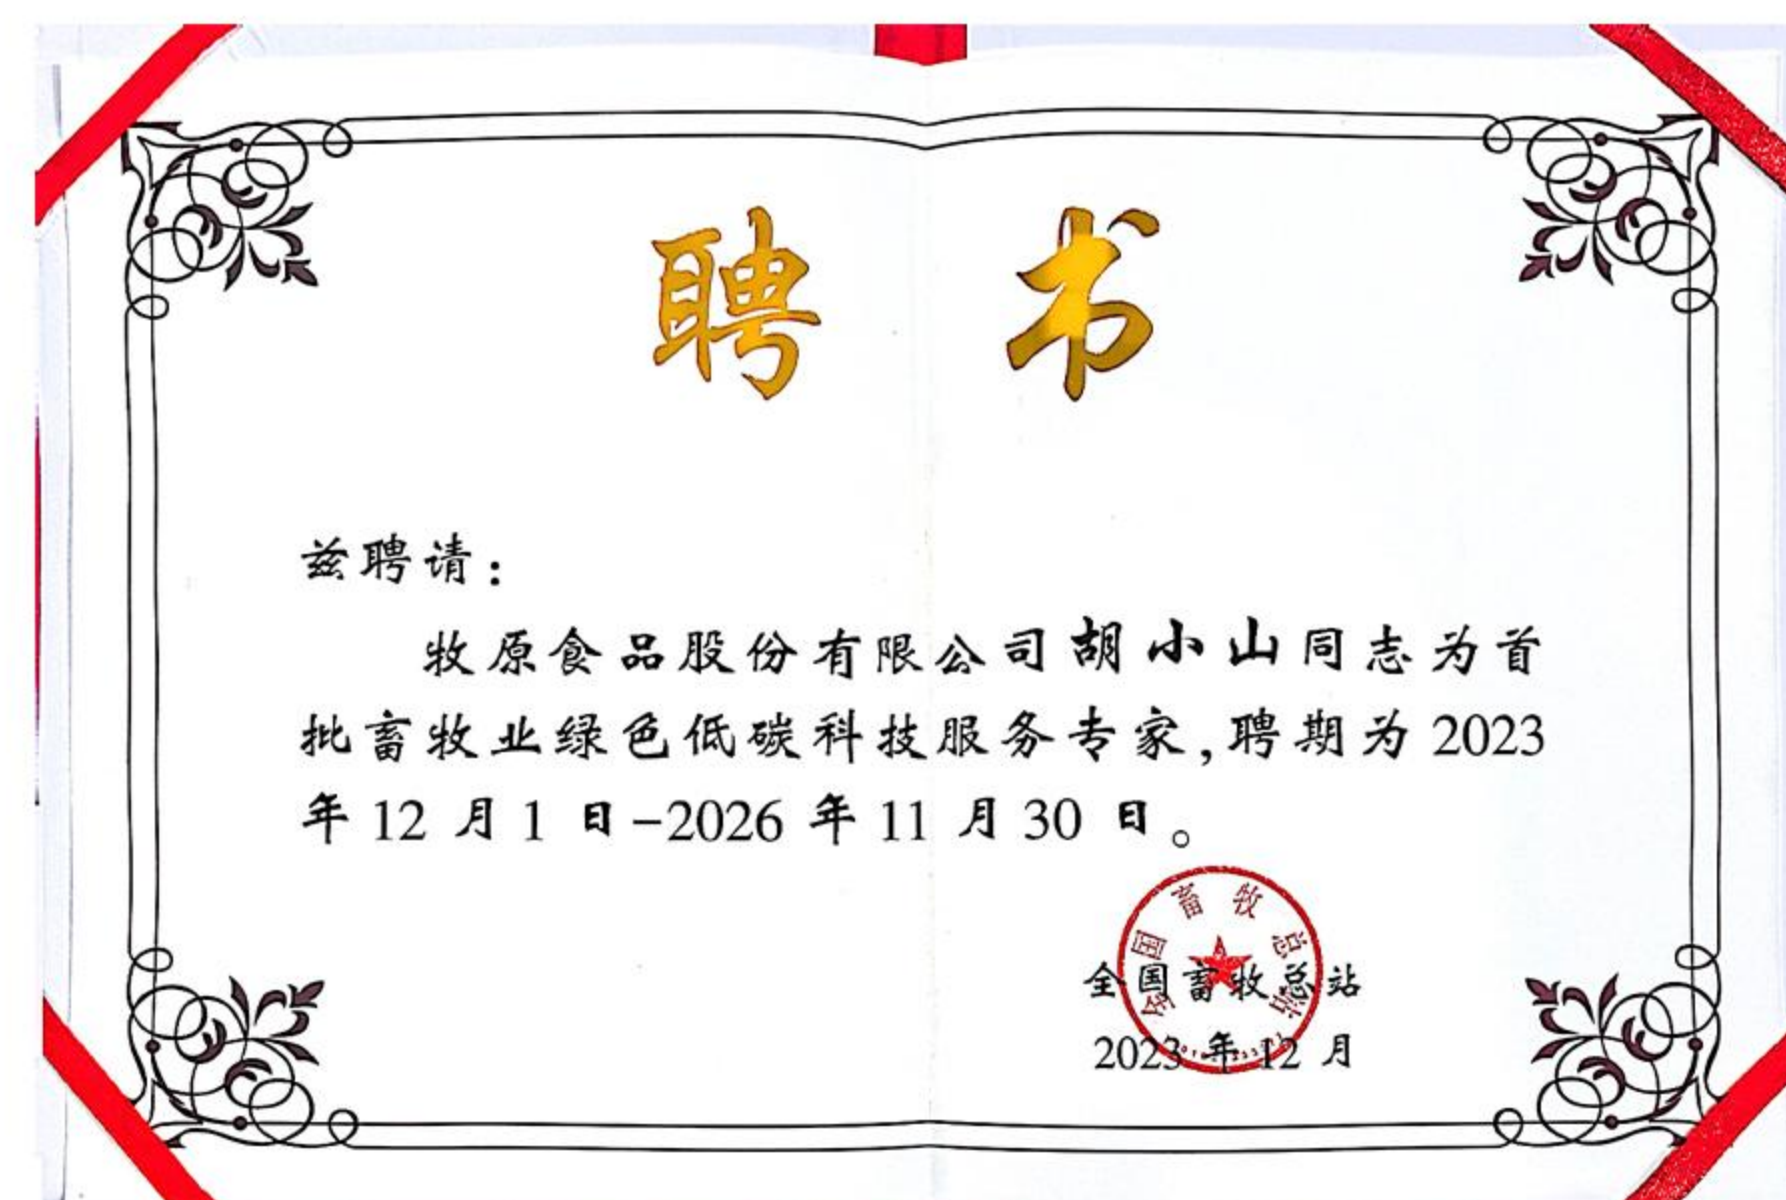 聘 书
兹聘请：
牧原食品股份有限公司胡小山同志为首
批畜牧业绿色低碳科技服务专家,聘期为 2023
年 12 月 1 日-2026 年 11 月 30 日。
全国畜牧总站
全国畜牧总站
2023 年 12 月